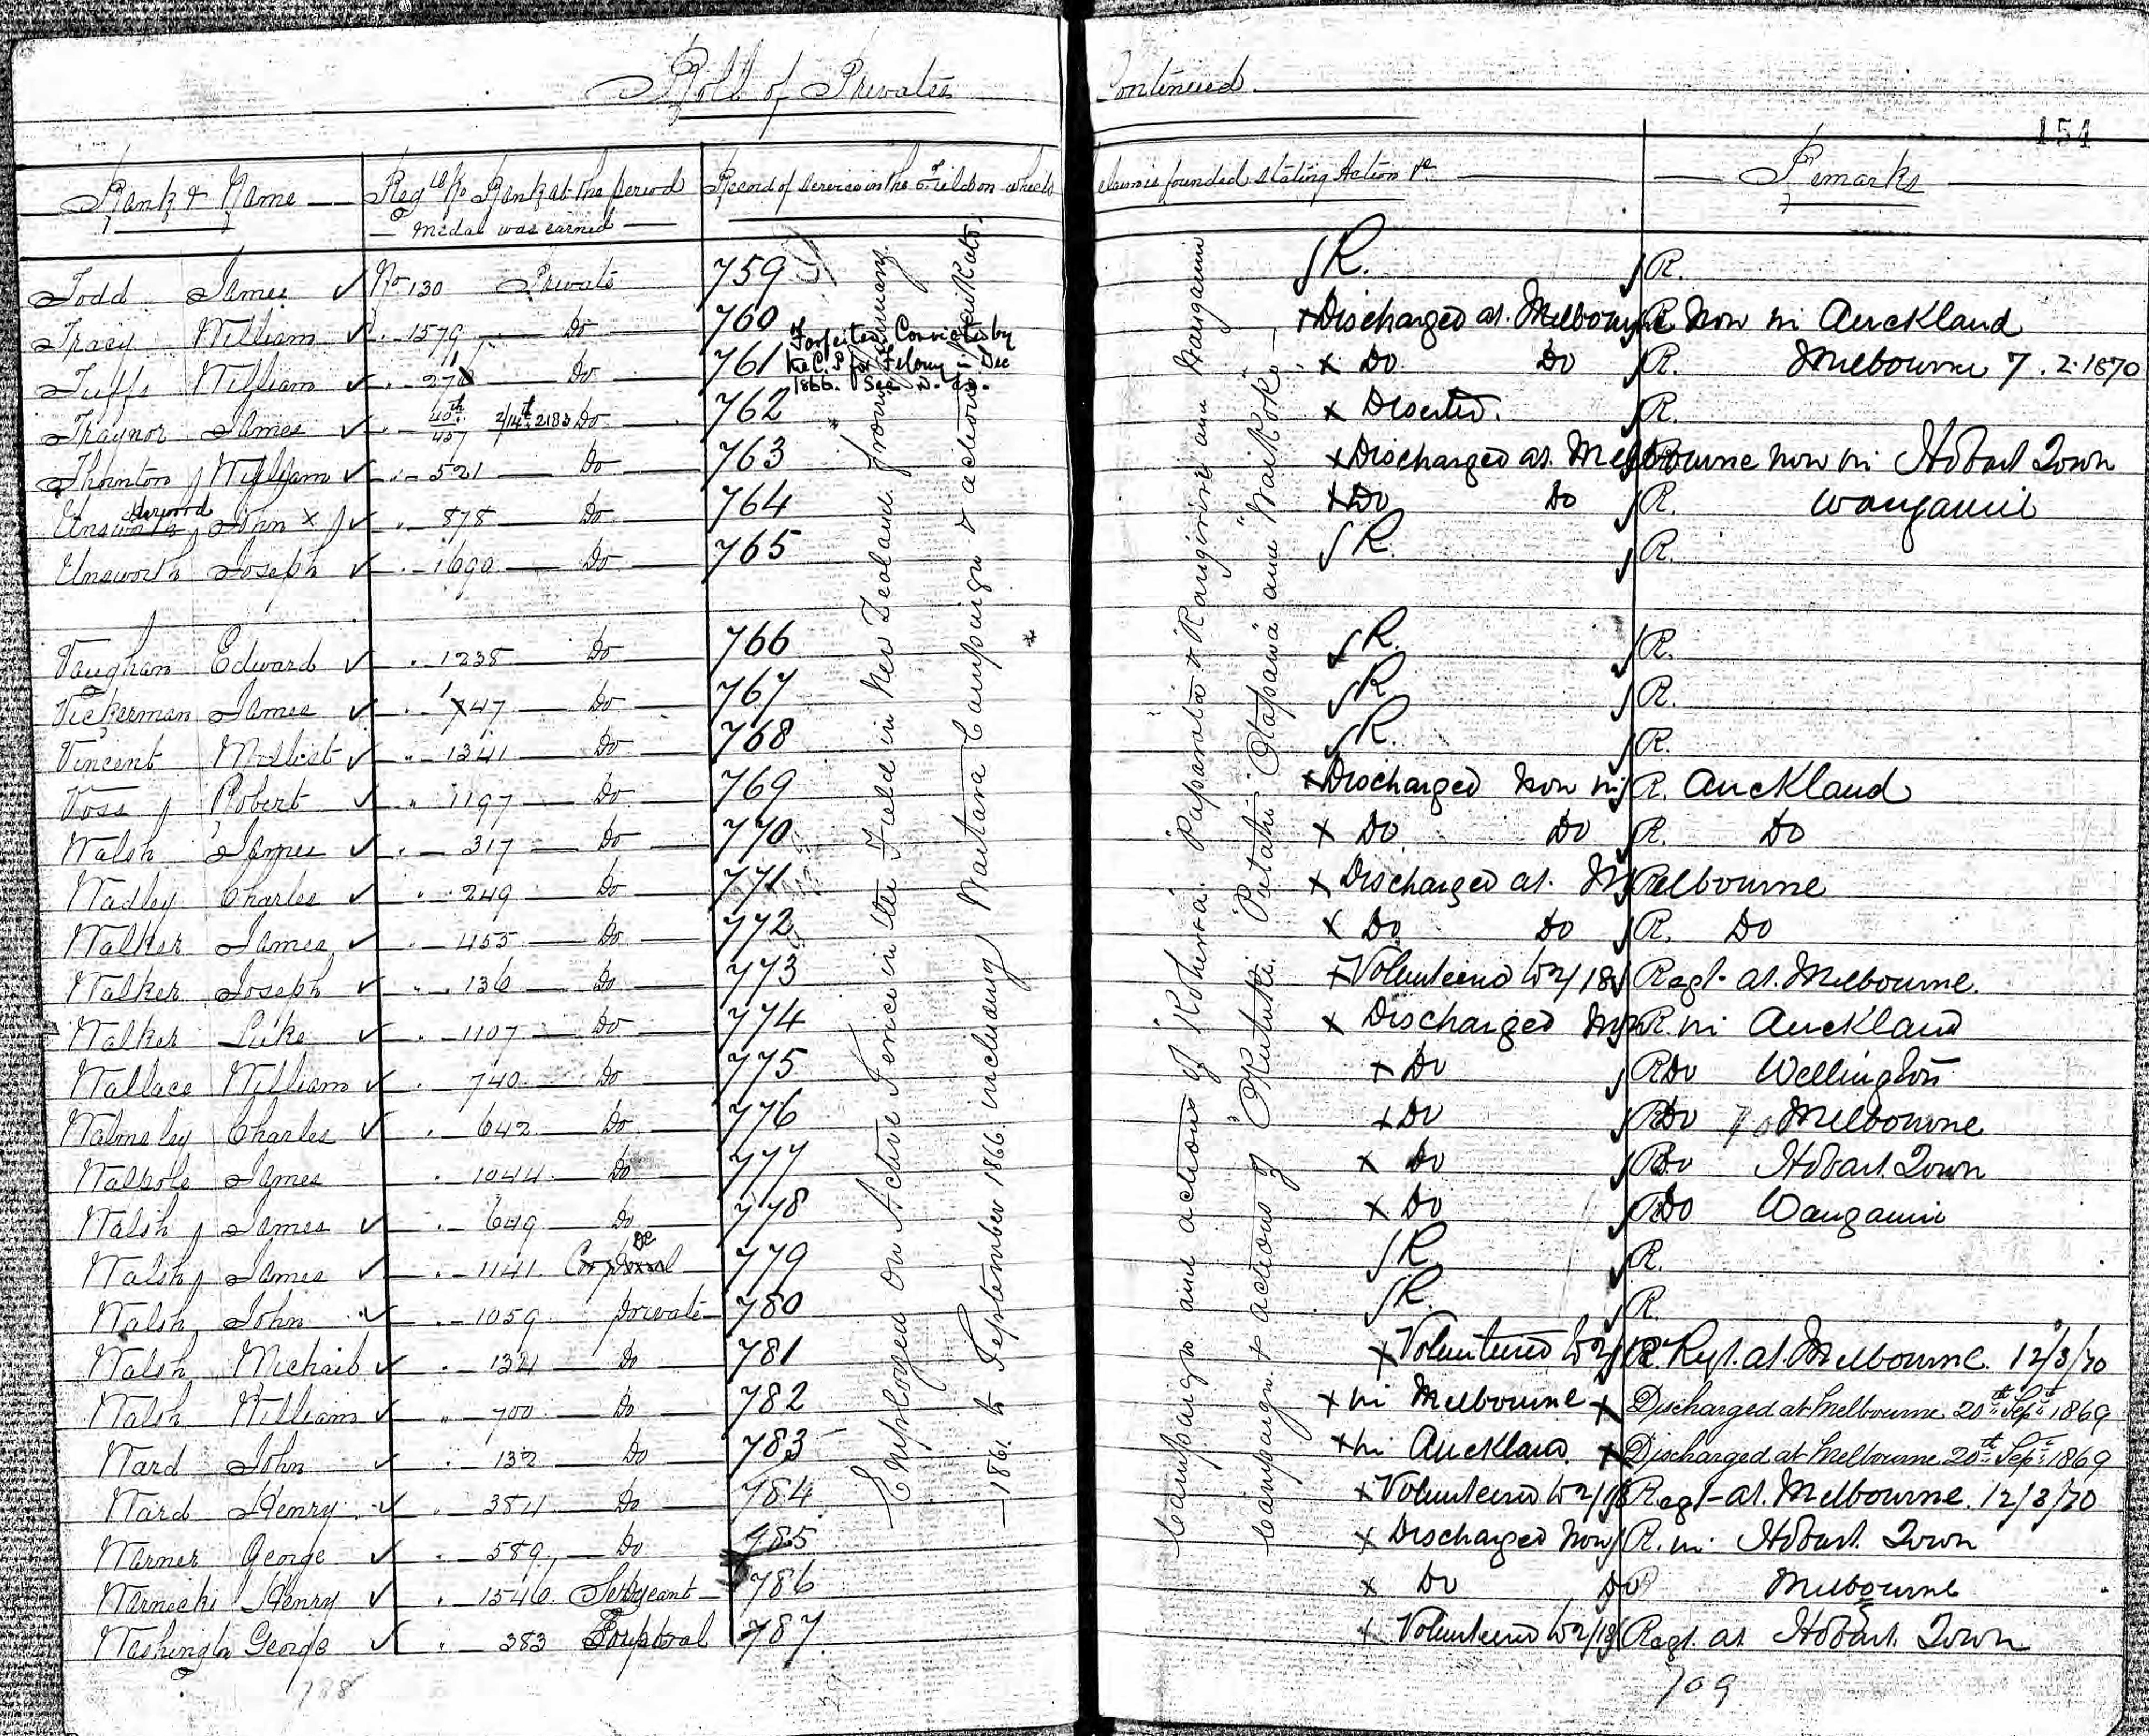 Roll of Privates Continued
154
Rank & Name Regtl No Rank at the period Record of services in the Field on which claim is founded stating Action &c Remarks
Medal was earned
Todd James ✓ No 130 Private 759 R. R.
Tracy William ✓ " 1579 Do 760 x Discharged at Melbourne R. Now in Auckland
Forfeited Convicted by
Tuffs William ✓ " 271 Do 761 x Do Do R. Melbourne 7.2.1870
the C.P. for Felony in Dec
1866.
Traynor James ✓ " 40th/457 2/14th 2183 Do 762 x Deserted. R.
Thornton William ✓ " 521 Do 763 x Discharged at Melbourne now in Hobart Town
Unsworth John x ✓ " 878 Do 764 x Do Do R. Wanganui
Unsworth Joseph ✓ " 1690 Do 765 R. R.
Vaughan Edward ✓ " 1238 Do 766 R. R.
Vickerman James ✓ " 147 Do 767 R. R.
Vincent ✓ " 1341 Do 768 R. R.
Voss Robert ✓ " 1197 Do 769 x Discharged Now in R. Auckland
Walsh James ✓ " 317 Do 770 x Do Do R. Do
Wadley Charles ✓ " 249 Do 771 x Discharged at Melbourne
Walker James ✓ " 455 Do 772 x Do Do R. Do
Walker Joseph ✓ " 136 Do 773 x Volunteered to 2/18 Regt. at Melbourne.
Walker Luke ✓ " 1107 Do 774 x Discharged Now R. in Auckland
Wallace William ✓ " 740 Do 775 x Do R Do Wellington
Walmsley Charles ✓ " 642 Do 776 x Do R Do Melbourne
Walpole James " 1044 Do 777 x Do R Do Hobart Town
Walsh James ✓ " 649 Do 778 x Do R Do Wanganui
Walsh James ✓ " 1141 Corporal Do 779 R. R.
Walsh John ✓ " 1059 private 780 R. R.
Walsh Michael ✓ " 1321 Do 781 x Volunteered to 2/18 Regt. at Melbourne. 12/3/70
Walsh William ✓ " 700 Do 782 x in Melbourne x Discharged at Melbourne 20th Sept 1869
Ward John ✓ " 132 Do 783 x in Auckland. x Discharged at Melbourne 20th Sept 1869
Ward Henry ✓ " 384 Do 784 x Volunteered to 2/18 Regt at Melbourne. 12/3/70
Warner George ✓ " 589 Do 785 x Discharged Now R. in Hobart Town
Warnecke Henry ✓ " 1546 Sergeant 786 x Do Do R Melbourne
Washington George ✓ " 383 Corporal 787. x Volunteered to 2/18 Regt. at Hobart Town
788
709
Employed on Active Service in the Field in New Zealand from January
1861 to September 1866 including Waitara Campaign & actions Waikato
Campaign and actions of "Koheroa" "Paparata" & "Rangiriri" and Wanganui
Campaign & actions of "Okutuku" "Putahi" "Otapawa" and "Waikoko"